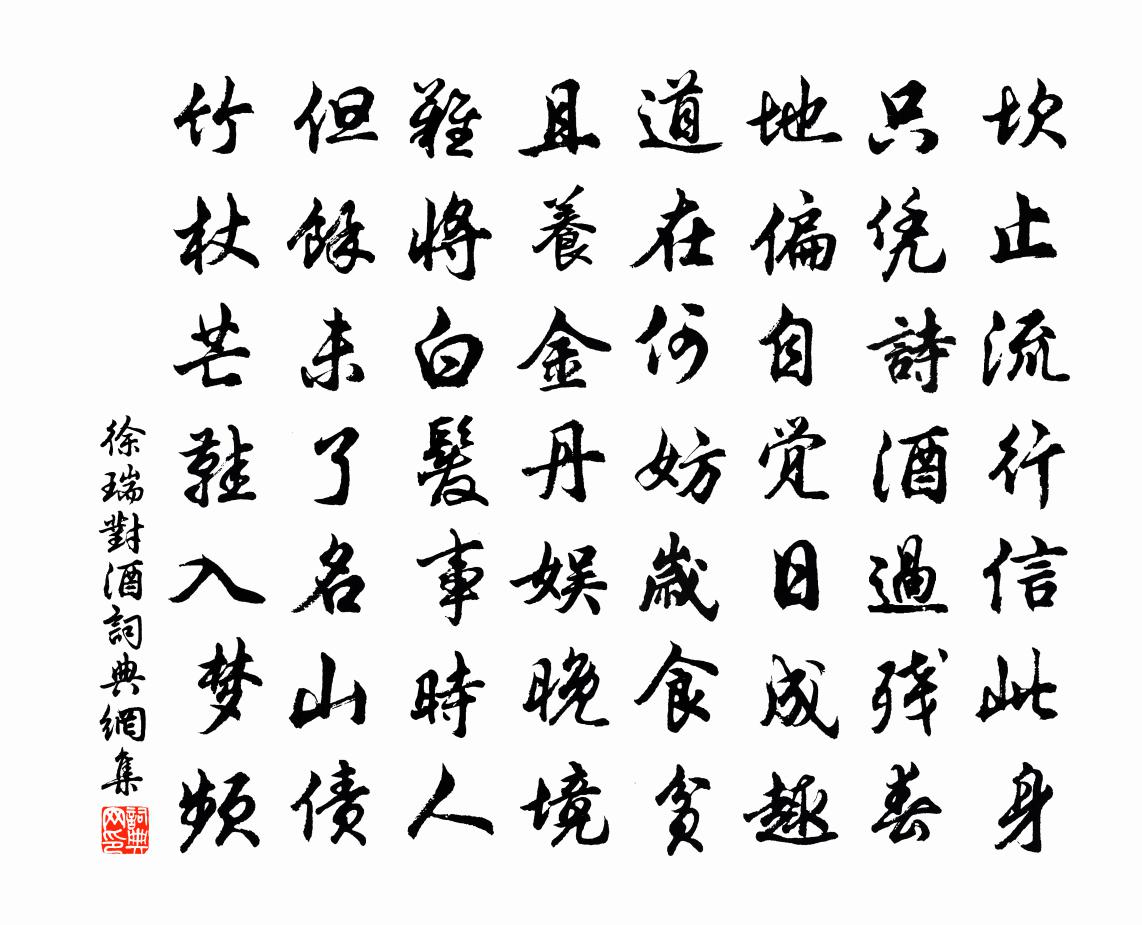 坎止流行信此身
只凭詩酒過残春
地偏自觉日成趣
道在何妨歲食貧
且養金丹娱晚境
難將白髮事時人
但餘未了名山债
竹杖芒鞋入梦频
徐瑞對酒詞典網集
詞典网印